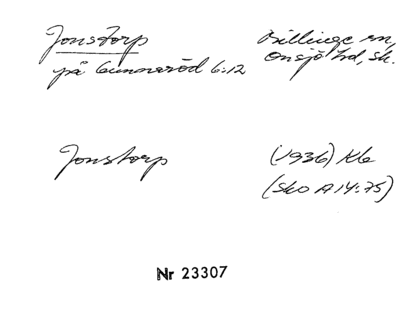 Jonstorp
på Gunnaröd 6:12
Billinge sn,
Onsjö hd, Sk.
Jonstorp
(1936) Kb
(Sko A 14:75)
Nr 23307